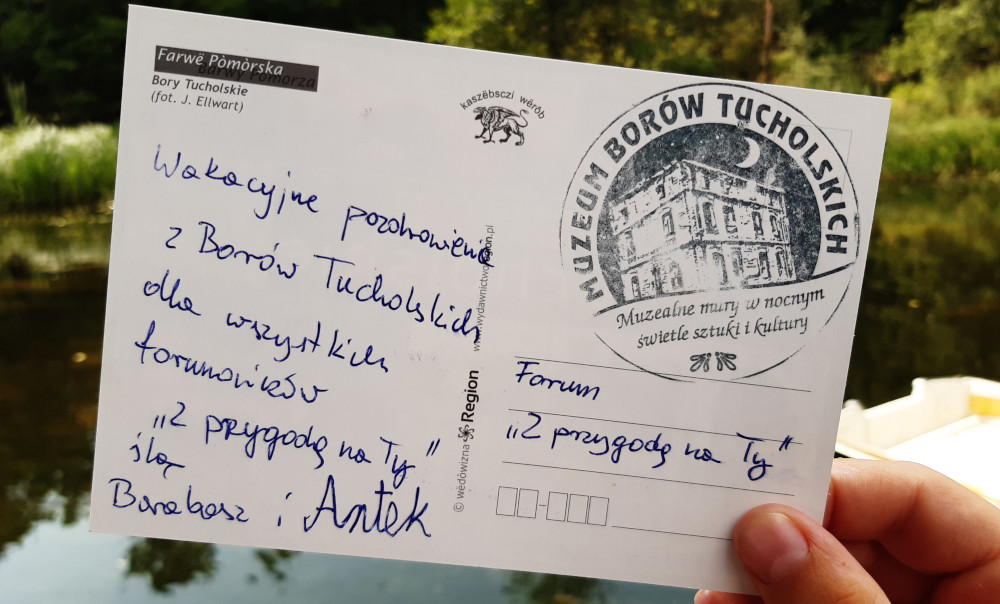 Farwë Pòmòrska
Barwy Pomorza
Bory Tucholskie
(fot. J. Ellwart)
kaszëbsczi wërób
MUZEUM BORÓW TUCHOLSKICH
Muzealne mury w nocnym
świetle sztuki i kultury
Wakacyjne pozdrowienia
z Borów Tucholskich
dla wszystkich
forumowiczów
„Z przygodą na Ty”
ślą
Barabasz i Antek
© wëdôwizna Region www.wydawnictworegion.pl
Forum
„Z przygodą na Ty”